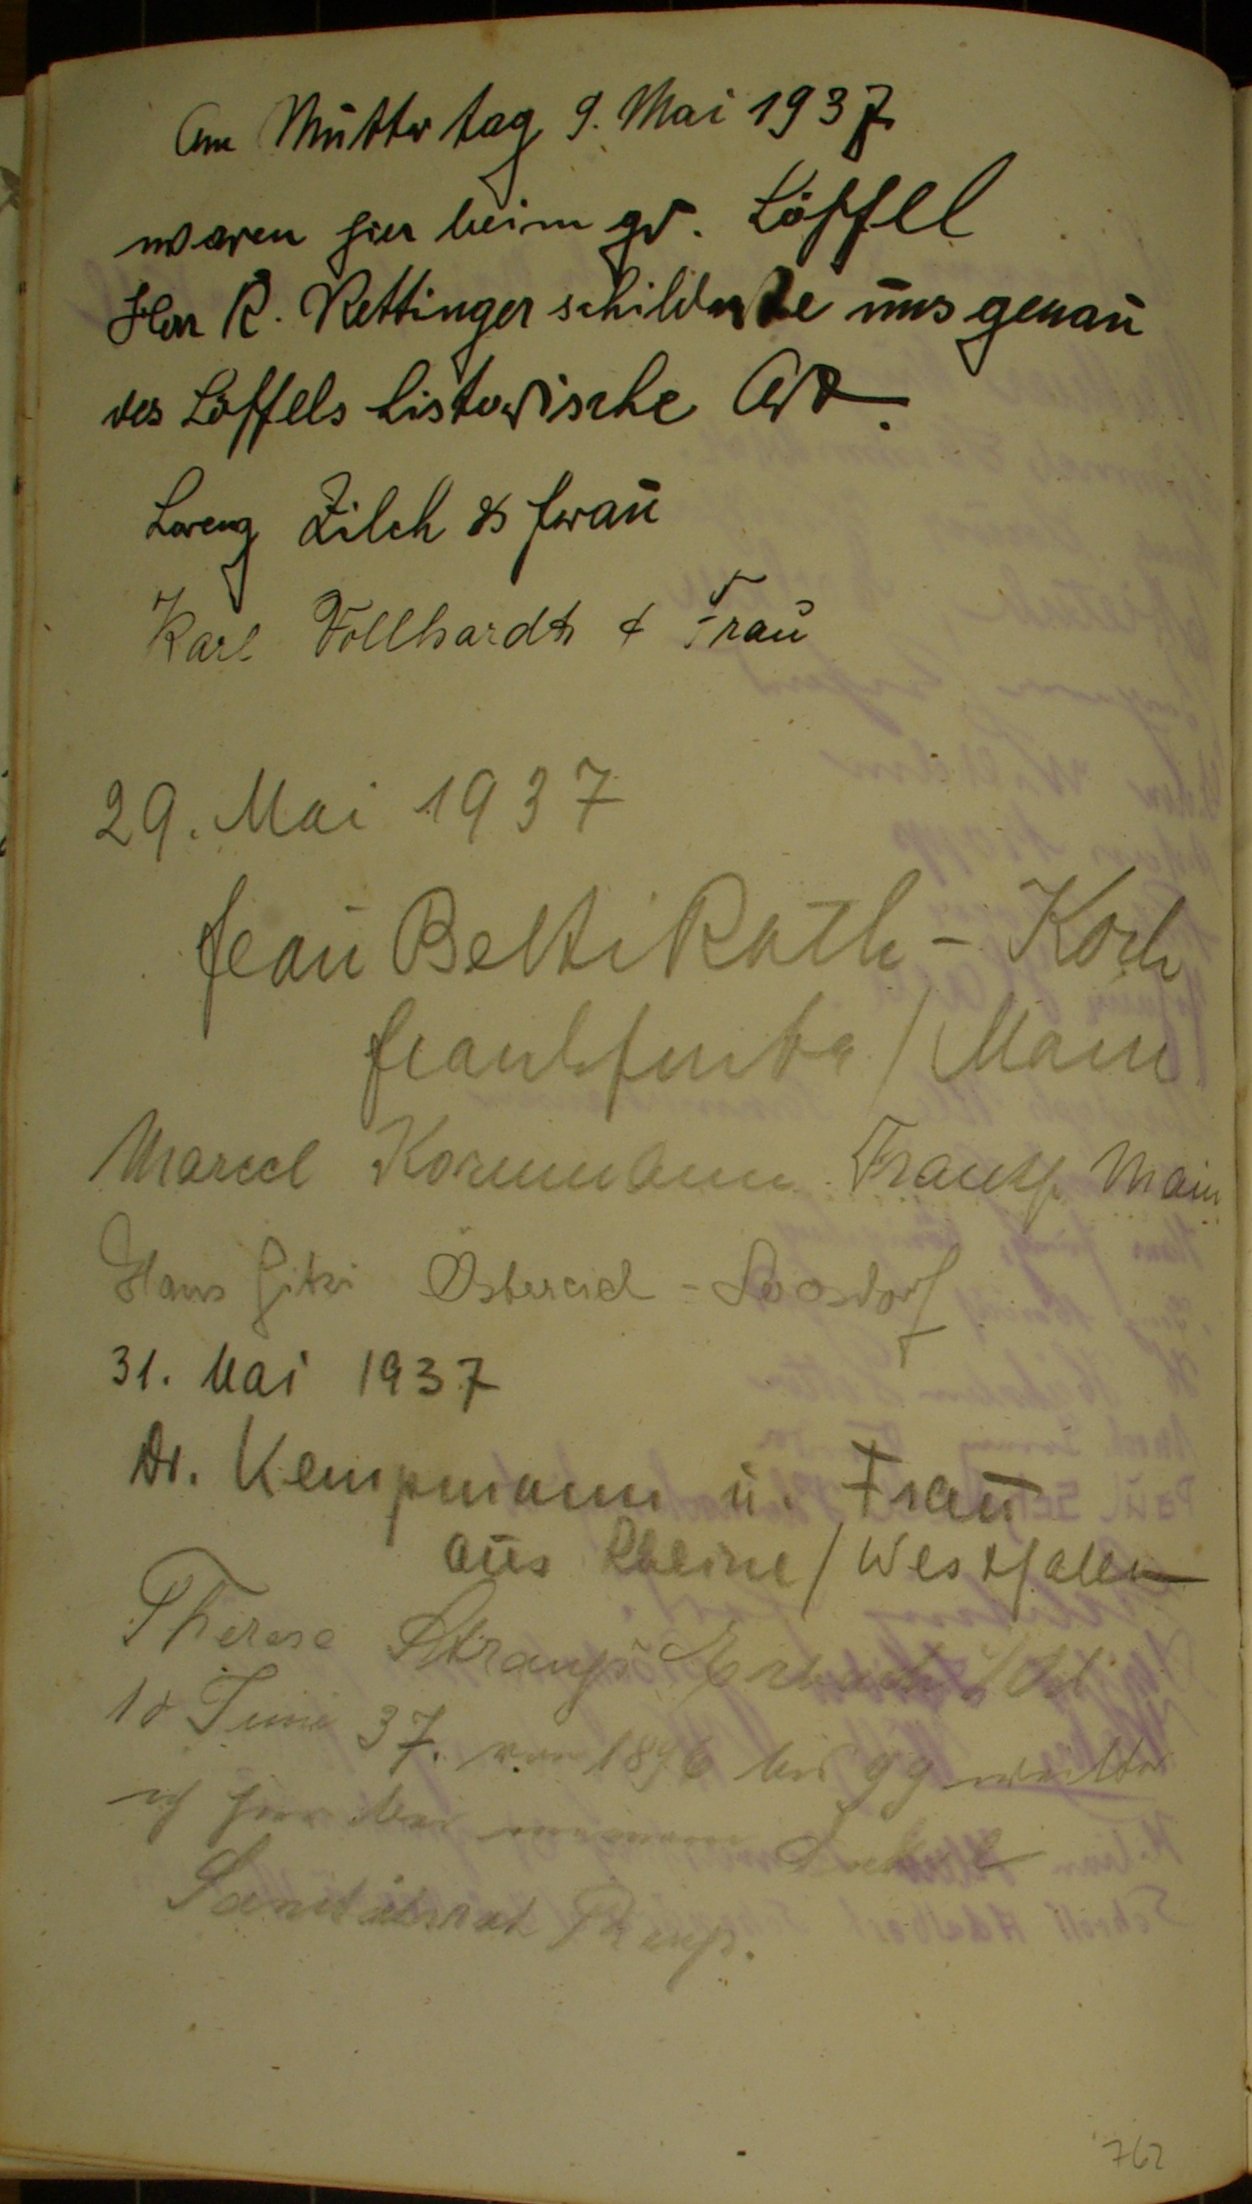 Am Muttertag 9. Mai 1937
waren hier beim gr. Löffel
Herr R. Rettinger schilderte uns genau
des Löffels historische Art.
Lorenz Zilch & Frau
Karl Vollhardt & Frau
29. Mai 1937
Frau Betti Roth - Koch
Frankfurt a / Main
Marcel Kornmann Frankf. Main
Hans Österreich - Loosdorf
31. Mai 1937
Dr. Kempmann u. Frau
aus Rheine / Westfalen
Therese Strauß Erbach i/Od
10 Juni 37. von 1896 bis 99 weilte
ich hier bei meinem Onkel
Sanitätsrat
762